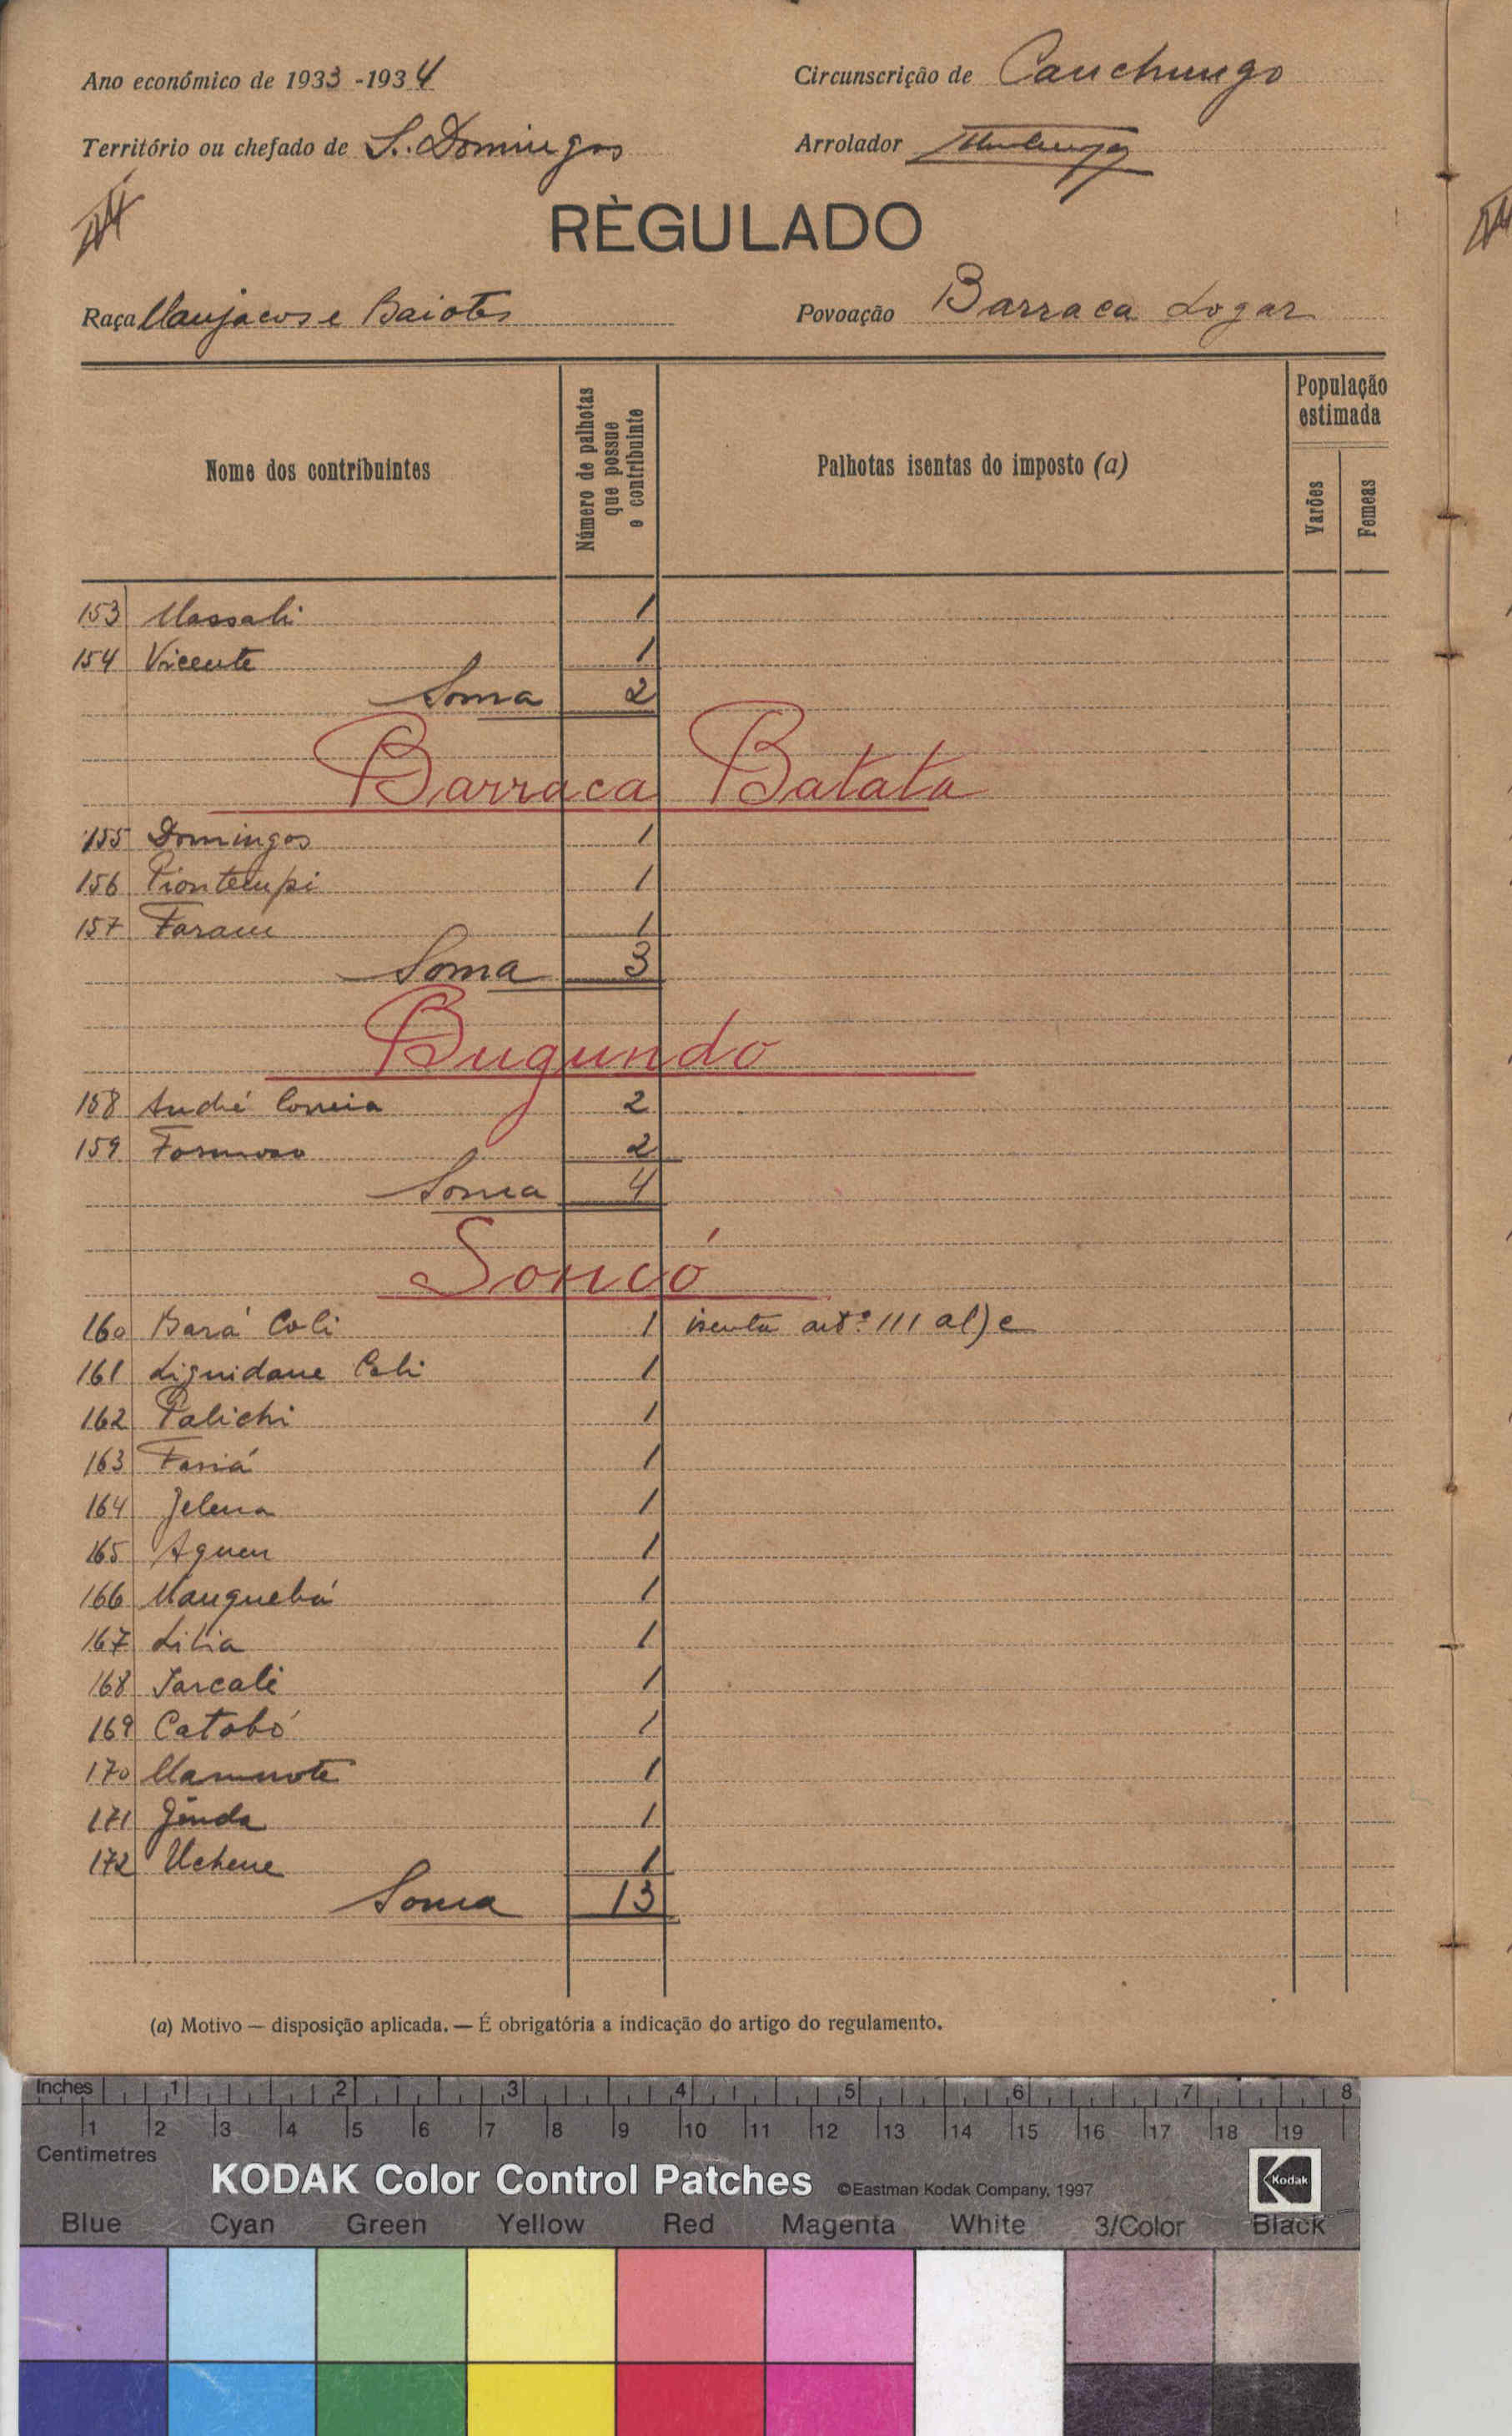 Ano económico de 1933-1934
Circunscrição de Canchungo
Território ou chefado de S. Domingos
Arrolador
RÈGULADO
Raça Manjacos e Baiotes
Povoação Barraca Logar
Nome dos contribuintes
Número de palhotas que possue o contribuinte
Palhotas isentas do imposto (a)
População estimada
Varões
Femeas
153 Massali 1
154 Vicente 1
Soma 2
Barraca Batata
155 Domingos 1
156 1
157 Faram 1
Soma 3
Bugundo
158 André Correia 2
159 Formoso 2
Soma 4
Soncó
160 Bará Coli 1 isenta artº 111 al) e
161 Liguidane Coli 1
162 Palichi 1
163 Fariá 1
164 Jelena 1
165 Aguen 1
166 Manguebá 1
167 Lilia 1
168 Jarcali 1
169 Catobó 1
170 Mamnote 1
171 Jênda 1
172 Uchene 1
Soma 13
(a) Motivo — disposição aplicada. — É obrigatória a indicação do artigo do regulamento.
Inches 1 2 3 4 5 6 7 8
1 2 3 4 5 6 7 8 9 10 11 12 13 14 15 16 17 18 19
Centimetres
KODAK Color Control Patches ©Eastman Kodak Company, 1997 Kodak
Blue Cyan Green Yellow Red Magenta White 3/Color Black